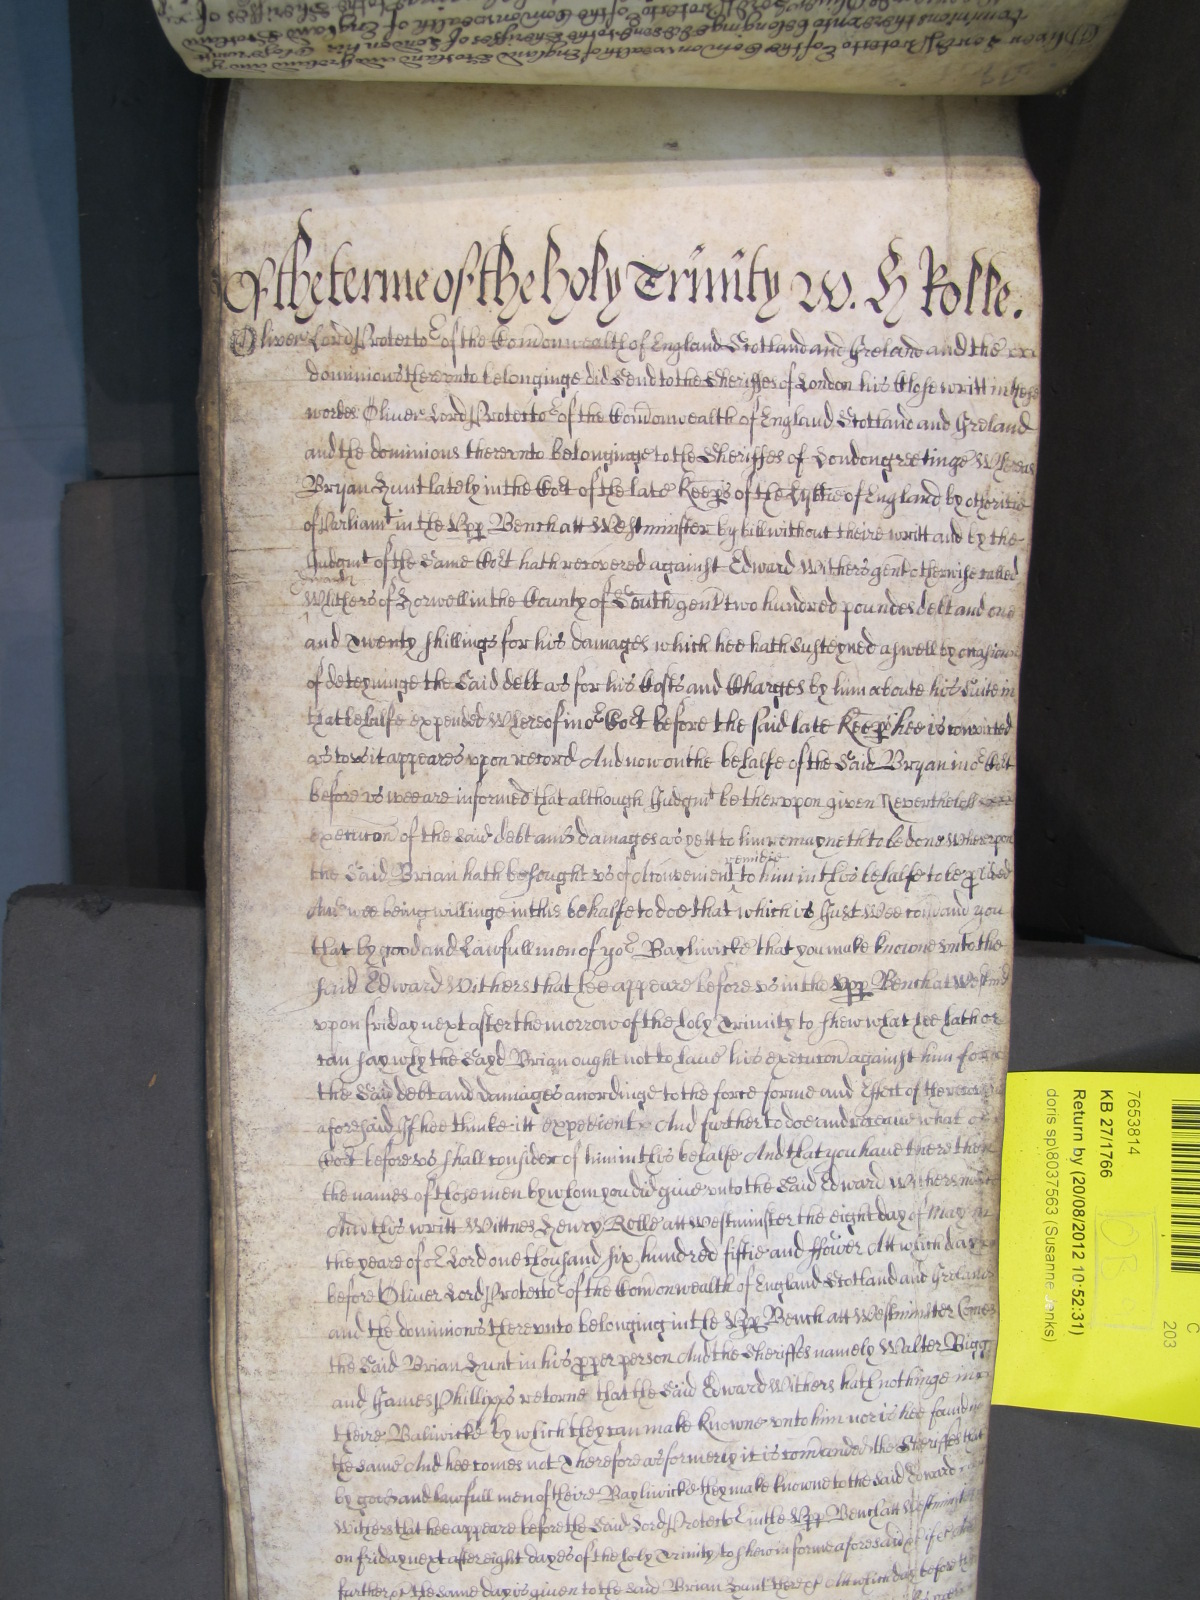 Of the terme of the holy Trinity W. H Rolle.
Oliver Lord Protecto^r of the Comonwealth of England Scotland and Ireland and the
dominions therevnto belonginge did send to the Sheriffes of London his Close writt in these
wordes Oliver Lord Protecto^r of the Comonwealth of England Scotland and Ireland
and the dominions therevnto belonginge to the Sheriffes of London greetinge Whereas
Bryan Hunt lately in the Co^rt of the late Keeps of the Lib^tie of England by authoritie
of Parliam^t in the Vpp Bench att Westminster by bill without theire writt and by the
Judgm^t of the same Co^rt hath recovered against Edward Withers gent otherwise called
Edward
Withers of in the County of South gent two hundred poundes debt and one
and Twenty shillings for his damages which hee hath susteyned aswell by occasion
of deteyninge the said debt as for his Costs and Charges by him aboute his suite in
that behalfe expended Whereof in o^r Co^rt before the said late Keeps hee is convicted
as to vs it appeares vpon record And now on the behalfe of the said Bryan in o^r Co^rt
before vs wee are informed that although Judgm^t be thervpon given Neverthelesse
execucon of the said debt and damages as yett to him remayneth to be done Wherevpon
the said Brian hath besought vs of a convenient to him in this behalfe to be pvided
remedie
And wee being willinge in this behalfe to doe that which is Just Wee comand you
that by good and lawfull men of yo^r Bayliwicke that you make knowne vnto the
said Edward Withers that hee appeare before vs in the Vpp Bench at Westmin
vpon friday next after the morrow of the holy Trinity to shew what hee hath or
can say why the sayd Brian ought not to haue his execucon against him for
the said debt and damages accordinge to the force forme and effect of the
aforesaid If hee thinke itt expedient And further to doe and receaue what o^r
Co^rt before vs shall consider of him in this behalfe And that you have there then
the names of those men by whom you did giue vnto the said Edward Withers
And this writt Wittnes Henry Rolle att Westminster the eight day of May in
the yeare of o^r Lord one thousand six hundred fiftie and ffower Att which day
before Oliver Lord Protecto^r of the Comonwealth of England Scotland and Ireland
and the dominions therevnto belonging in the Vpp Bench att Westminster Comes
the said Brian Hunt in his pper person And the Sheriffes namely Walter Bigg
and James Phillipps retorne that the said Edward Withers hath nothinge in
theire Baliwicke by which they can make knowne vnto him nor is hee found in
the same And hee comes not Therefore as formerly it is comanded the Sheriffes that
by good and lawfull men of theire Bayliwicke they make knowne to the said Edward
Withers that hee appeare before the said Lord Protecto^r in the Vpp Bench att Westminster
on friday next after eight dayes of the holy Trinity to shew in forme aforesaid if
further the same day is given to the said Brian Hunt there Att which day before
7653814
KB 27/1766
Return by (20/08/2012 10:52:31)
doris sp\8037563 (Susanne Jenks)
C
203